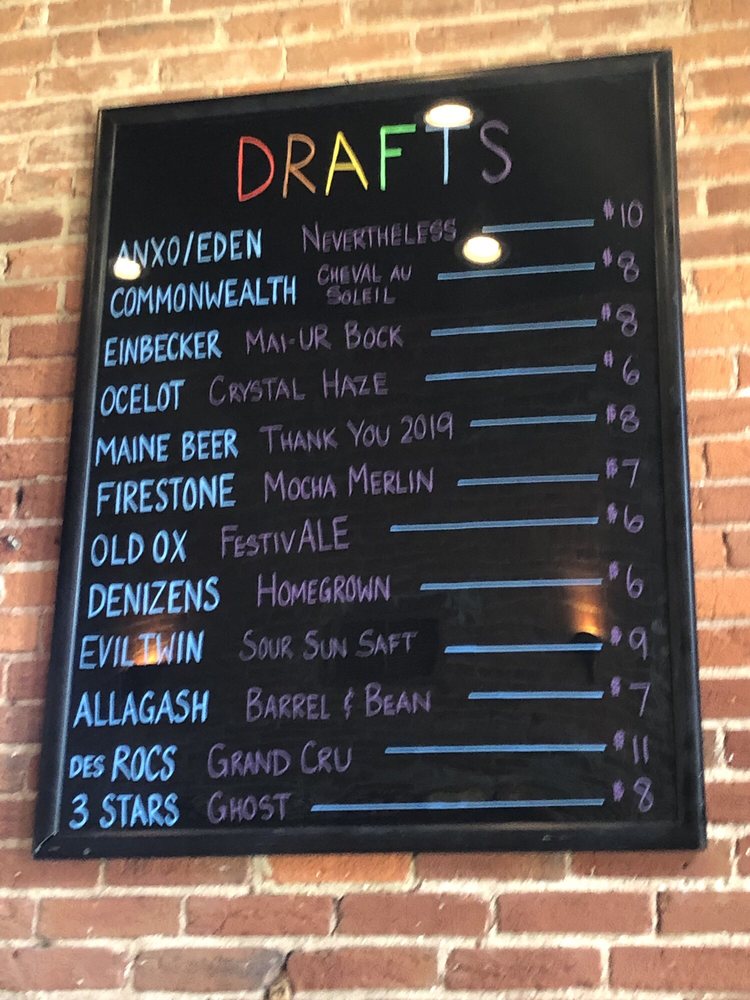 DRAFTS
ANXO/EDEN NEVERTHELESS $10
COMMONWEALTH CHEVAL AU SOLEIL $8
EINBECKER MAI-UR BOCK $8
OCELOT CRYSTAL HAZE $6
MAINE BEER THANK YOU 2019 $8
FIRESTONE MOCHA MERLIN $7
OLD OX FESTIVALE $6
DENIZENS HOMEGROWN $6
EVIL TWIN SOUR SUN SAFT $9
ALLAGASH BARREL & BEAN $7
DES ROCS GRAND CRU $11
3 STARS GHOST $8